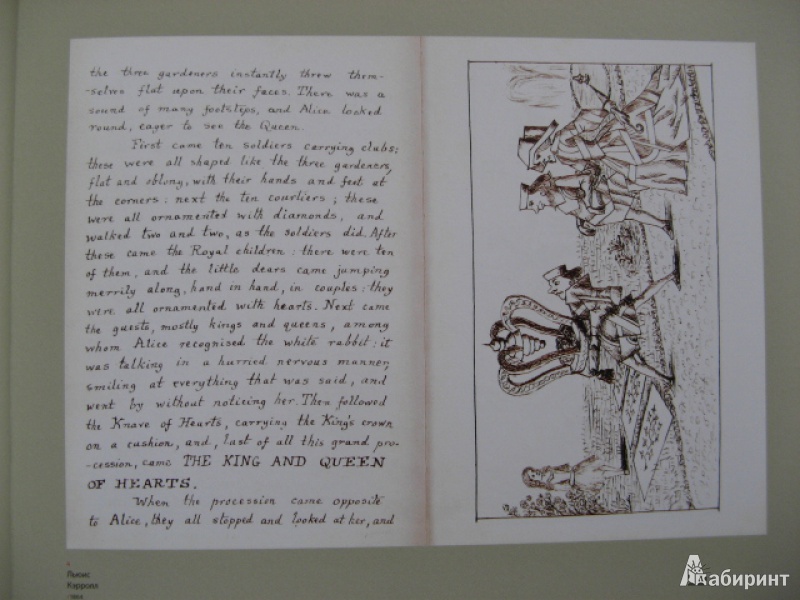 the three gardeners instantly threw them-
-selves flat upon their faces. There was a
sound of many footsteps, and Alice looked
round, eager to see the Queen.
First came ten soldiers carrying clubs;
these were all shaped like the three gardeners,
flat and oblong, with their hands and feet at
the corners: next the ten courtiers; these
were all ornamented with diamonds, and
walked two and two, as the soldiers did. After
these came the Royal children: there were ten
of them, and the little dears came jumping
merrily along, hand in hand, in couples: they
were all ornamented with hearts. Next came
the guests, mostly kings and queens, among
whom Alice recognised the white rabbit: it
was talking in a hurried nervous manner,
smiling at everything that was said, and
went by without noticing her. Then followed
the Knave of Hearts, carrying the King's crown
on a cushion, and, last of all this grand pro-
-cession, came THE KING AND QUEEN
OF HEARTS.
When the procession came opposite
to Alice, they all stopped and looked at her, and
Льюис
Кэрролл
Лабиринт